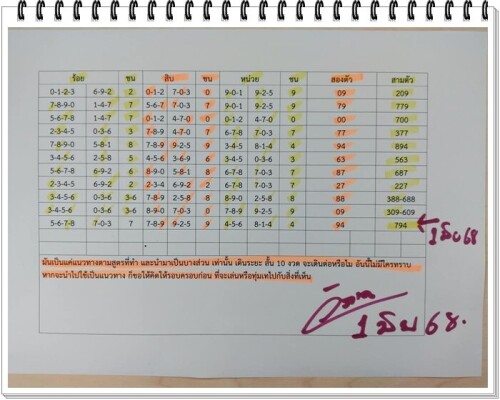 ร้อย ชน สิบ ชน หน่วย ชน สองตัว สามตัว
0-1-2-3 6-9-2 2 0-1-2 7-0-3 0 9-0-1 9-2-5 9 09 209
7-8-9-0 1-4-7 7 5-6-7 7-0-3 7 9-0-1 9-2-5 9 79 779
5-6-7-8 1-4-7 7 0-1-2 4-7-0 0 0-1-2 4-7-0 0 00 700
2-3-4-5 0-3-6 3 7-8-9 4-7-0 7 6-7-8 7-0-3 7 77 377
7-8-9-0 5-8-1 8 7-8-9 9-2-5 9 3-4-5 8-1-4 4 94 894
3-4-5-6 2-5-8 5 4-5-6 3-6-9 6 3-4-5 0-3-6 3 63 563
5-6-7-8 6-9-2 6 8-9-0 5-8-1 8 6-7-8 7-0-3 7 87 687
2-3-4-5 6-9-2 2 2-3-4 6-9-2 2 6-7-8 7-0-3 7 27 227
3-4-5-6 0-3-6 3-6 7-8-9 2-5-8 8 7-8-9 5-8-1 8 88 388-688
3-4-5-6 0-3-6 3-6 8-9-0 7-0-3 0 7-8-9 9-2-5 9 09 309-609
5-6-7-8 7-0-3 7 7-8-9 9-2-5 9 4-5-6 8-1-4 4 94 794
1 มิย 68
มันเป็นแค่แนวทางตามสูตรที่ทำ และนำมาเป็นบางส่วน เท่านั้น เดินระยะ สั้น 10 งวด จะเดินต่อหรือไม่ อันนี้ไม่มีใครทราบ
หากจะนำไปใช้เป็นแนวทาง ก็ขอให้คิดให้รอบครอบก่อน ที่จะเล่นหรือทุ่มเทไปกับสิ่งที่เห็น
1 มิย 68.